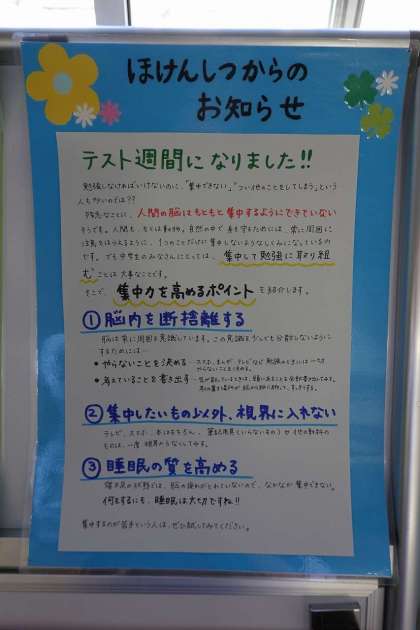 ほけんしつからの
お知らせ
テスト週間になりました!!
勉強しなければいけないのに、「集中できない」「つい他のことをしてしまう」という
人も多いのでは??
残念なことに、人間の脳はもともと集中するようにできていない
そうです。人間も、もとは動物。自然の中で身を守るためには、常に周囲に
注意をはらえるように、1つのことだけに集中しないようなしくみになっているので
す。でも中学生のみなさんにとっては、集中して勉強に取り組
む ことは大事なことです。
そこで、集中力を高めるポイントを紹介します。
①脳内を断捨離する
脳は常に周囲を意識しています。この意識を少しでも分散しないように
するためには…
● やらないことを決める…スマホ、まんが、テレビなど勉強のときには一切
やらないことを決める。
● 考えていることを書き出す…
②集中したいもの以外、視界に入れない
テレビ、スマホ、本はもちろん、筆記用具(いらないもの)や他の教科の
ものは、一度視界からなくしてみる。
③睡眠の質を高める
寝不足の状態では、脳の疲れがとれていないので、なかなか集中できない。
何をするにも、睡眠は大切ですね!!
集中するのが苦手という人は、ぜひ試してみてください。